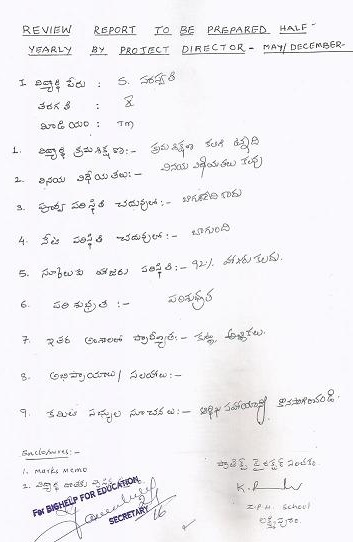 REVIEW REPORT TO BE PREPARED HALF-
YEARLY BY PROJECT DIRECTOR - MAY/DECEMBER-
I విద్యార్థి పేరు : S. సరస్వతి
తరగతి : 8
మీడియం : TM
1. విద్యార్థి క్రమశిక్షణ :- క్రమశిక్షణ కలిగి ఉన్నది
2. వినయ విధేయతలు :- వినయ విధేయతలు కలవు
3. పూర్వ పరిస్థితి చదువులో :- బాగులేదు
4. నేటి పరిస్థితి చదువులో :- బాగుంది
5. స్కూలుకు హాజరు పరిస్థితి :- 92% హాజరు కలదు.
6. పరిశుభ్రత :- పరిశుభ్రత
7. ఇతర అంశాలలో ప్రావీణ్యత :- కుట్లు అల్లికలు.
8. అభిప్రాయాలు / సలహాలు :-
9. కమిటి సభ్యుల సూచనలు :- ఆర్థిక సహాయాన్ని కొనసాగించండి.
Enclosures :-
1. Marks Memo
2. విద్యార్థి
For BIGHELP FOR EDUCATION
SECRETARY
ప్రాజెక్ట్ డైరెక్టర్ సంతకం
Z.P.H. School
లక్ష్మీపురం